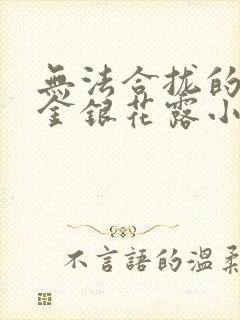 無法合拢的
金銀花露小
不言語的溫柔